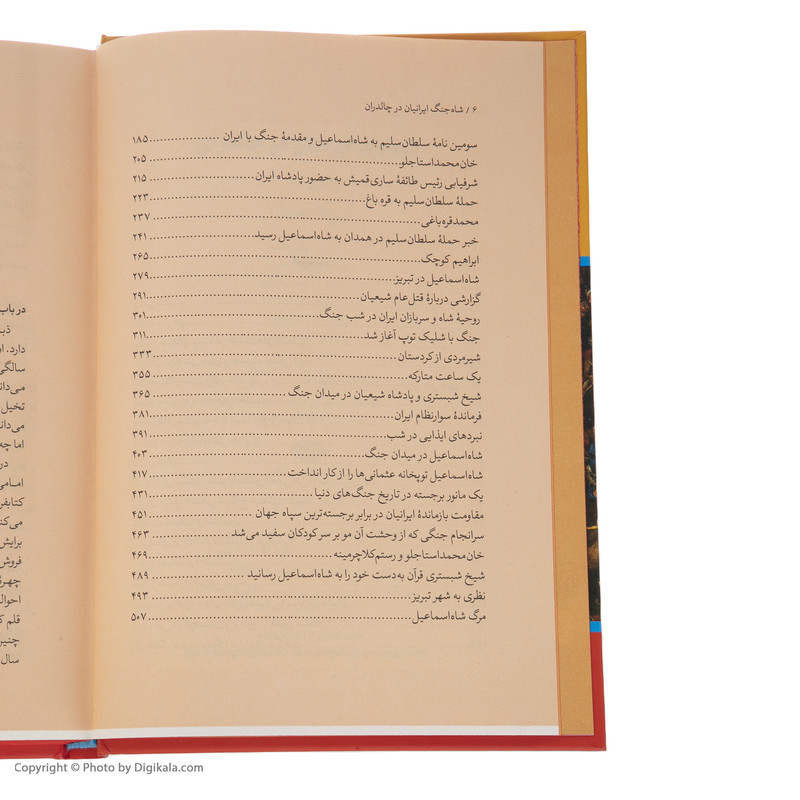 ۶ / شاه‌جنگ ایرانیان در چالدران
سومین نامهٔ سلطان‌سلیم به شاه‌اسماعیل و مقدمهٔ جنگ با ایران ........ ۱۸۵
خان‌محمد استاجلو ........ ۲۰۵
شرفیابی رئیس طائفهٔ ساری‌قمیش به حضور پادشاه ایران ........ ۲۱۵
حملهٔ سلطان‌سلیم به قره باغ ........ ۲۲۳
محمد قره‌باغی ........ ۲۳۷
خبر حملهٔ سلطان‌سلیم در همدان به شاه‌اسماعیل رسید ........ ۲۴۱
ابراهیم کوچک ........ ۲۶۵
شاه‌اسماعیل در تبریز ........ ۲۷۹
گزارشی دربارهٔ قتل‌عام شیعیان ........ ۲۹۱
روحیهٔ شاه و سربازان ایران در شب جنگ ........ ۳۰۱
جنگ با شلیک توپ آغاز شد ........ ۳۱۱
شیرمردی از کردستان ........ ۳۳۳
یک ساعت متارکه ........ ۳۵۵
شیخ شبستری و پادشاه شیعیان در میدان جنگ ........ ۳۶۵
فرماندهٔ سوارنظام ایران ........ ۳۸۱
نبردهای ایذایی در شب ........ ۳۹۱
شاه‌اسماعیل در میدان جنگ ........ ۴۰۳
شاه‌اسماعیل توپخانه عثمانی‌ها را از کار انداخت ........ ۴۱۷
یک مانور برجسته در تاریخ جنگ‌های دنیا ........ ۴۳۱
مقاومت بازماندهٔ ایرانیان در برابر برجسته‌ترین سپاه جهان ........ ۴۵۱
سرانجام جنگی که از وحشت آن مو بر سر کودکان سفید می‌شد ........ ۴۶۳
خان‌محمد استاجلو و رستم‌کلاچرمینه ........ ۴۶۹
شیخ شبستری قرآن به‌دست خود را به شاه‌اسماعیل رسانید ........ ۴۸۹
نظری به شهر تبریز ........ ۴۹۳
مرگ شاه‌اسماعیل ........ ۵۰۷
در باب
دارد.
سالگی
می‌دان
تخیل
می‌دان
اما چه
در
امامی
کتابفر
می‌کن
برایش
فروش
چهرهٔ
احوال
قلم
چنین
سال
Copyright © Photo by Digikala.com